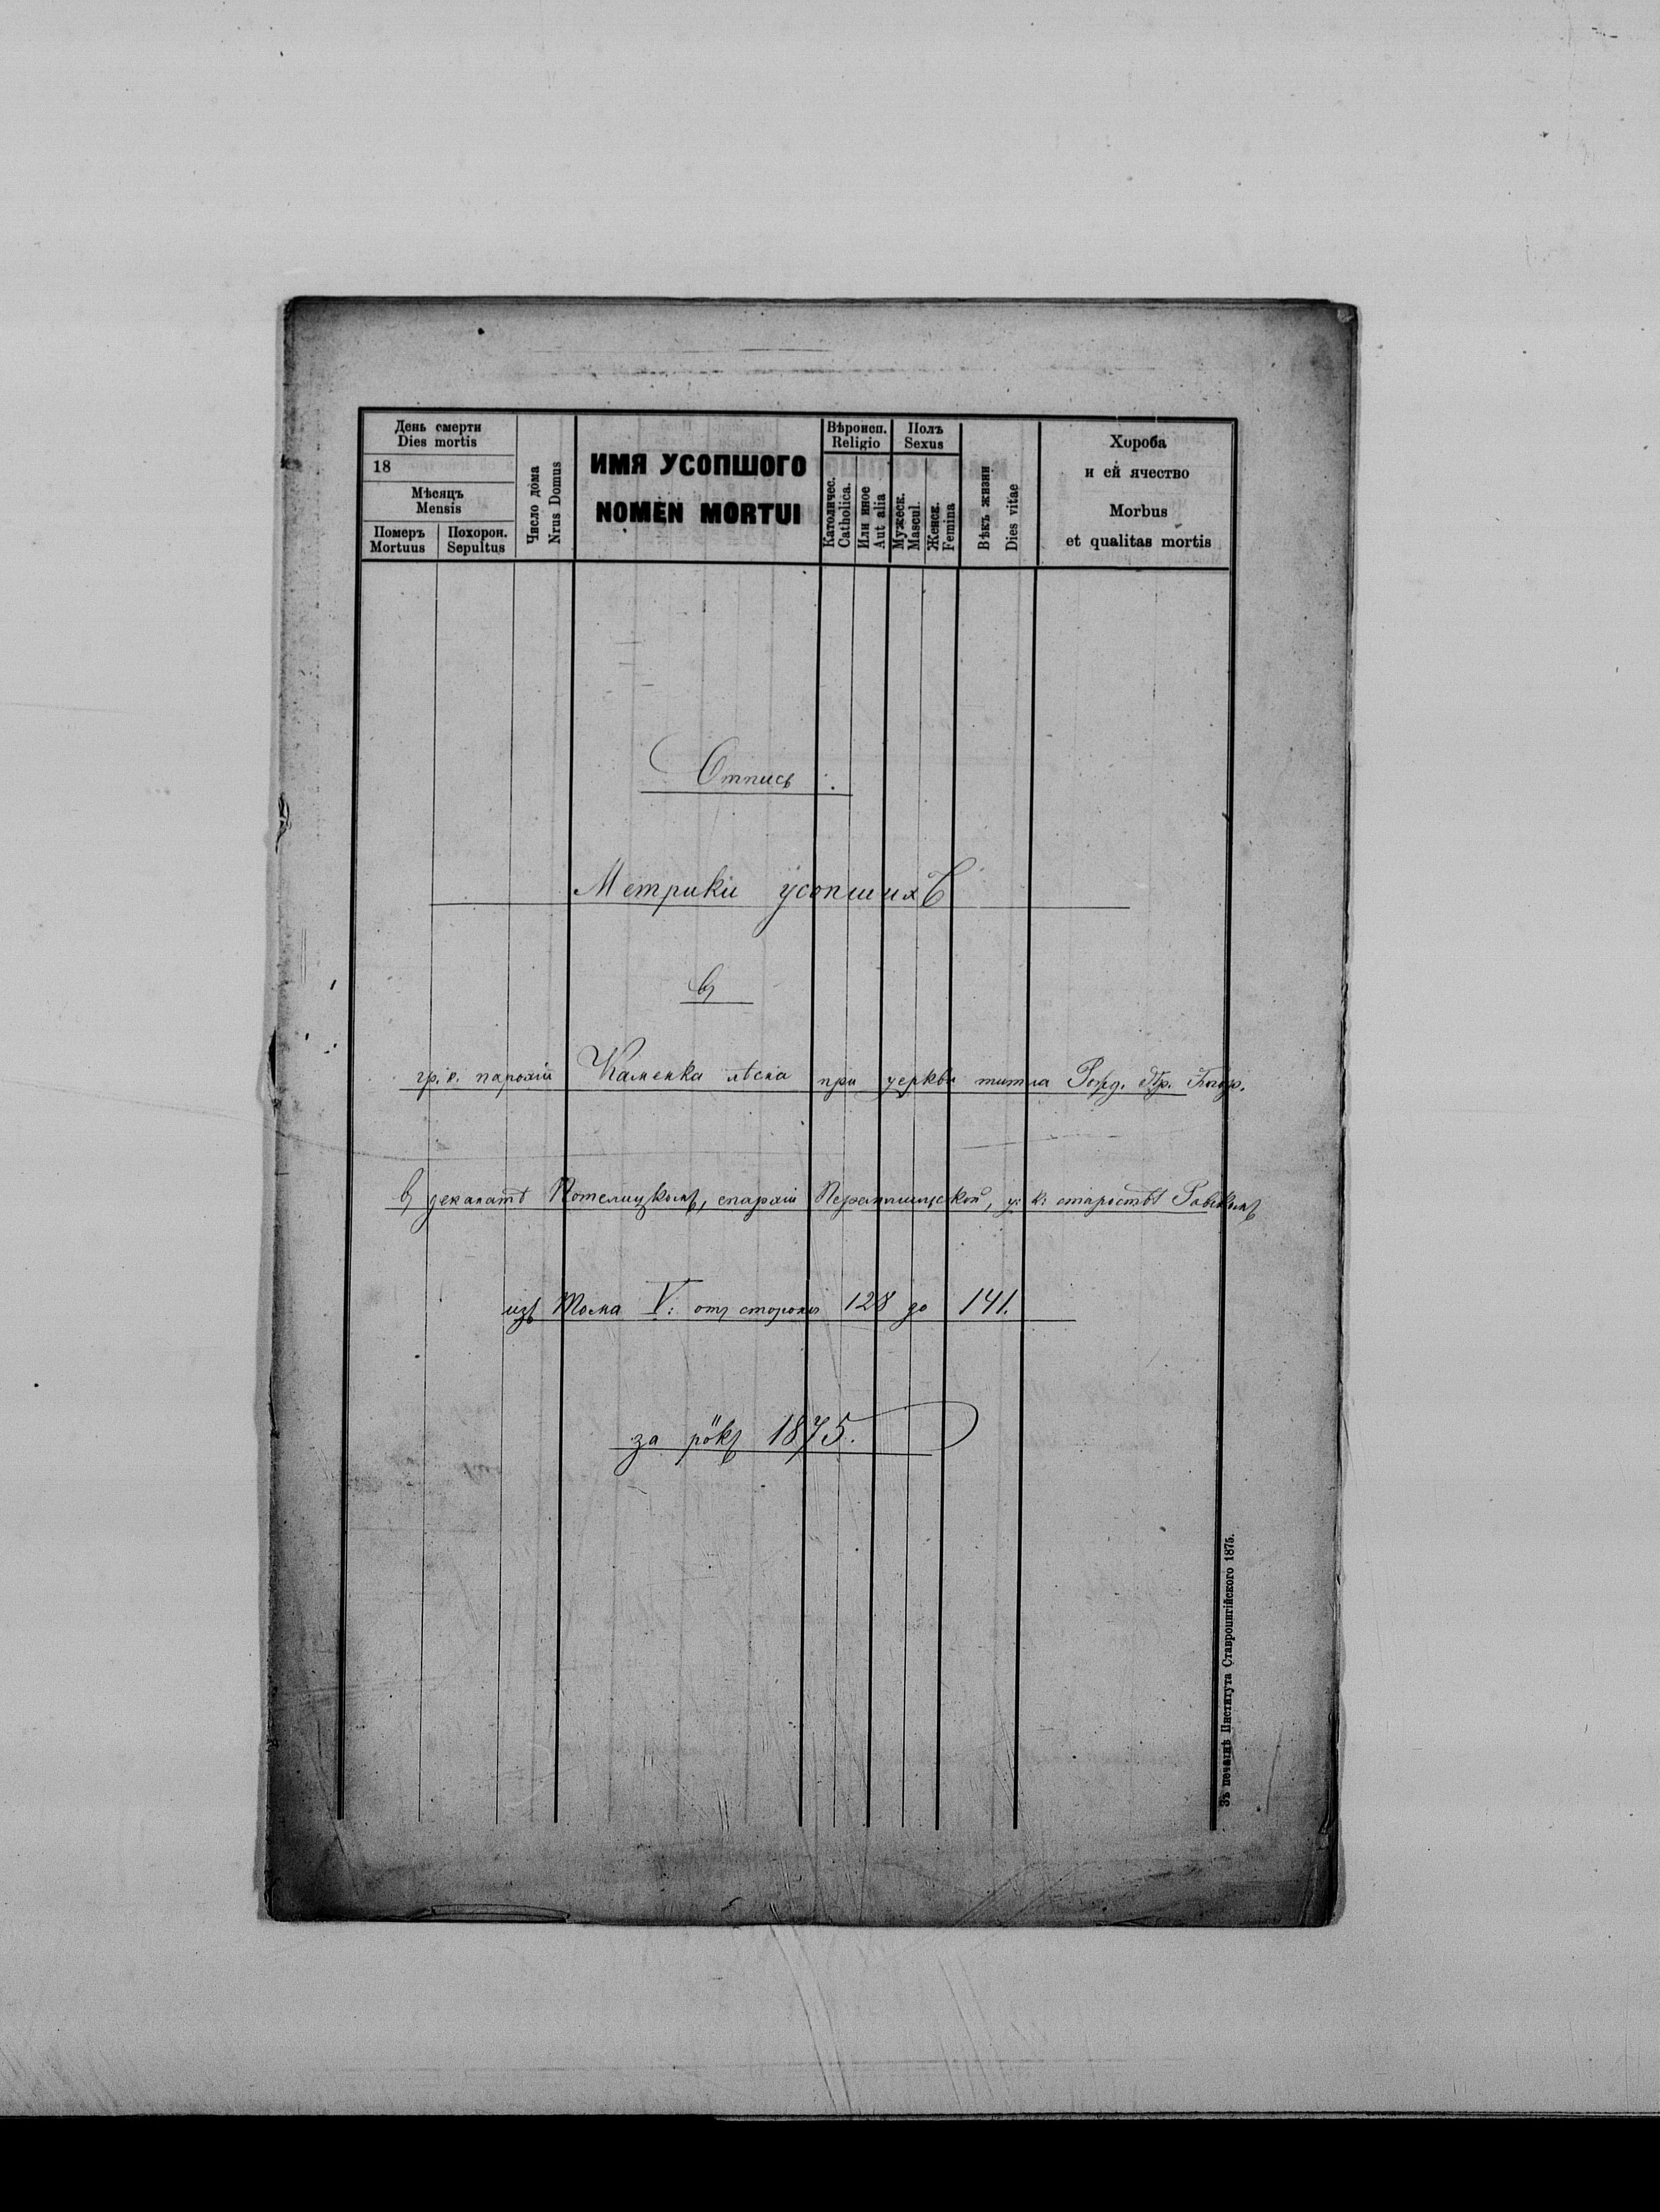 День смерти
Dies mortis
18
Мѣсяцъ
Mensis
Померъ
Mortuus
Похорон.
Sepultus
Число дома
Nrus Domus
ИМЯ УСОПШОГО
NOMEN MORTUI
Вѣроисп.
Religio
Католичес.
Catholica.
Или иное
Aut alia
Полъ
Sexus
Мужеск.
Mascul.
Женск.
Femina
Вѣкъ жизни
Dies vitae
Хороба
и ей ячество
Morbus
et qualitas mortis
Отпись :
Метрики усопшихъ
въ
гр. к. парохіи Каменка лѣсна при церкви титла Рожд. Пр. Богор.
въ деканатѣ Потелицкомъ, епархіи Перемышльской, ц: к: староствѣ Равскомъ
изъ Тома V: отъ стороны 128 до 141.
за рокъ 1875.
Зъ печатнѣ Института Ставропигійского 1875.